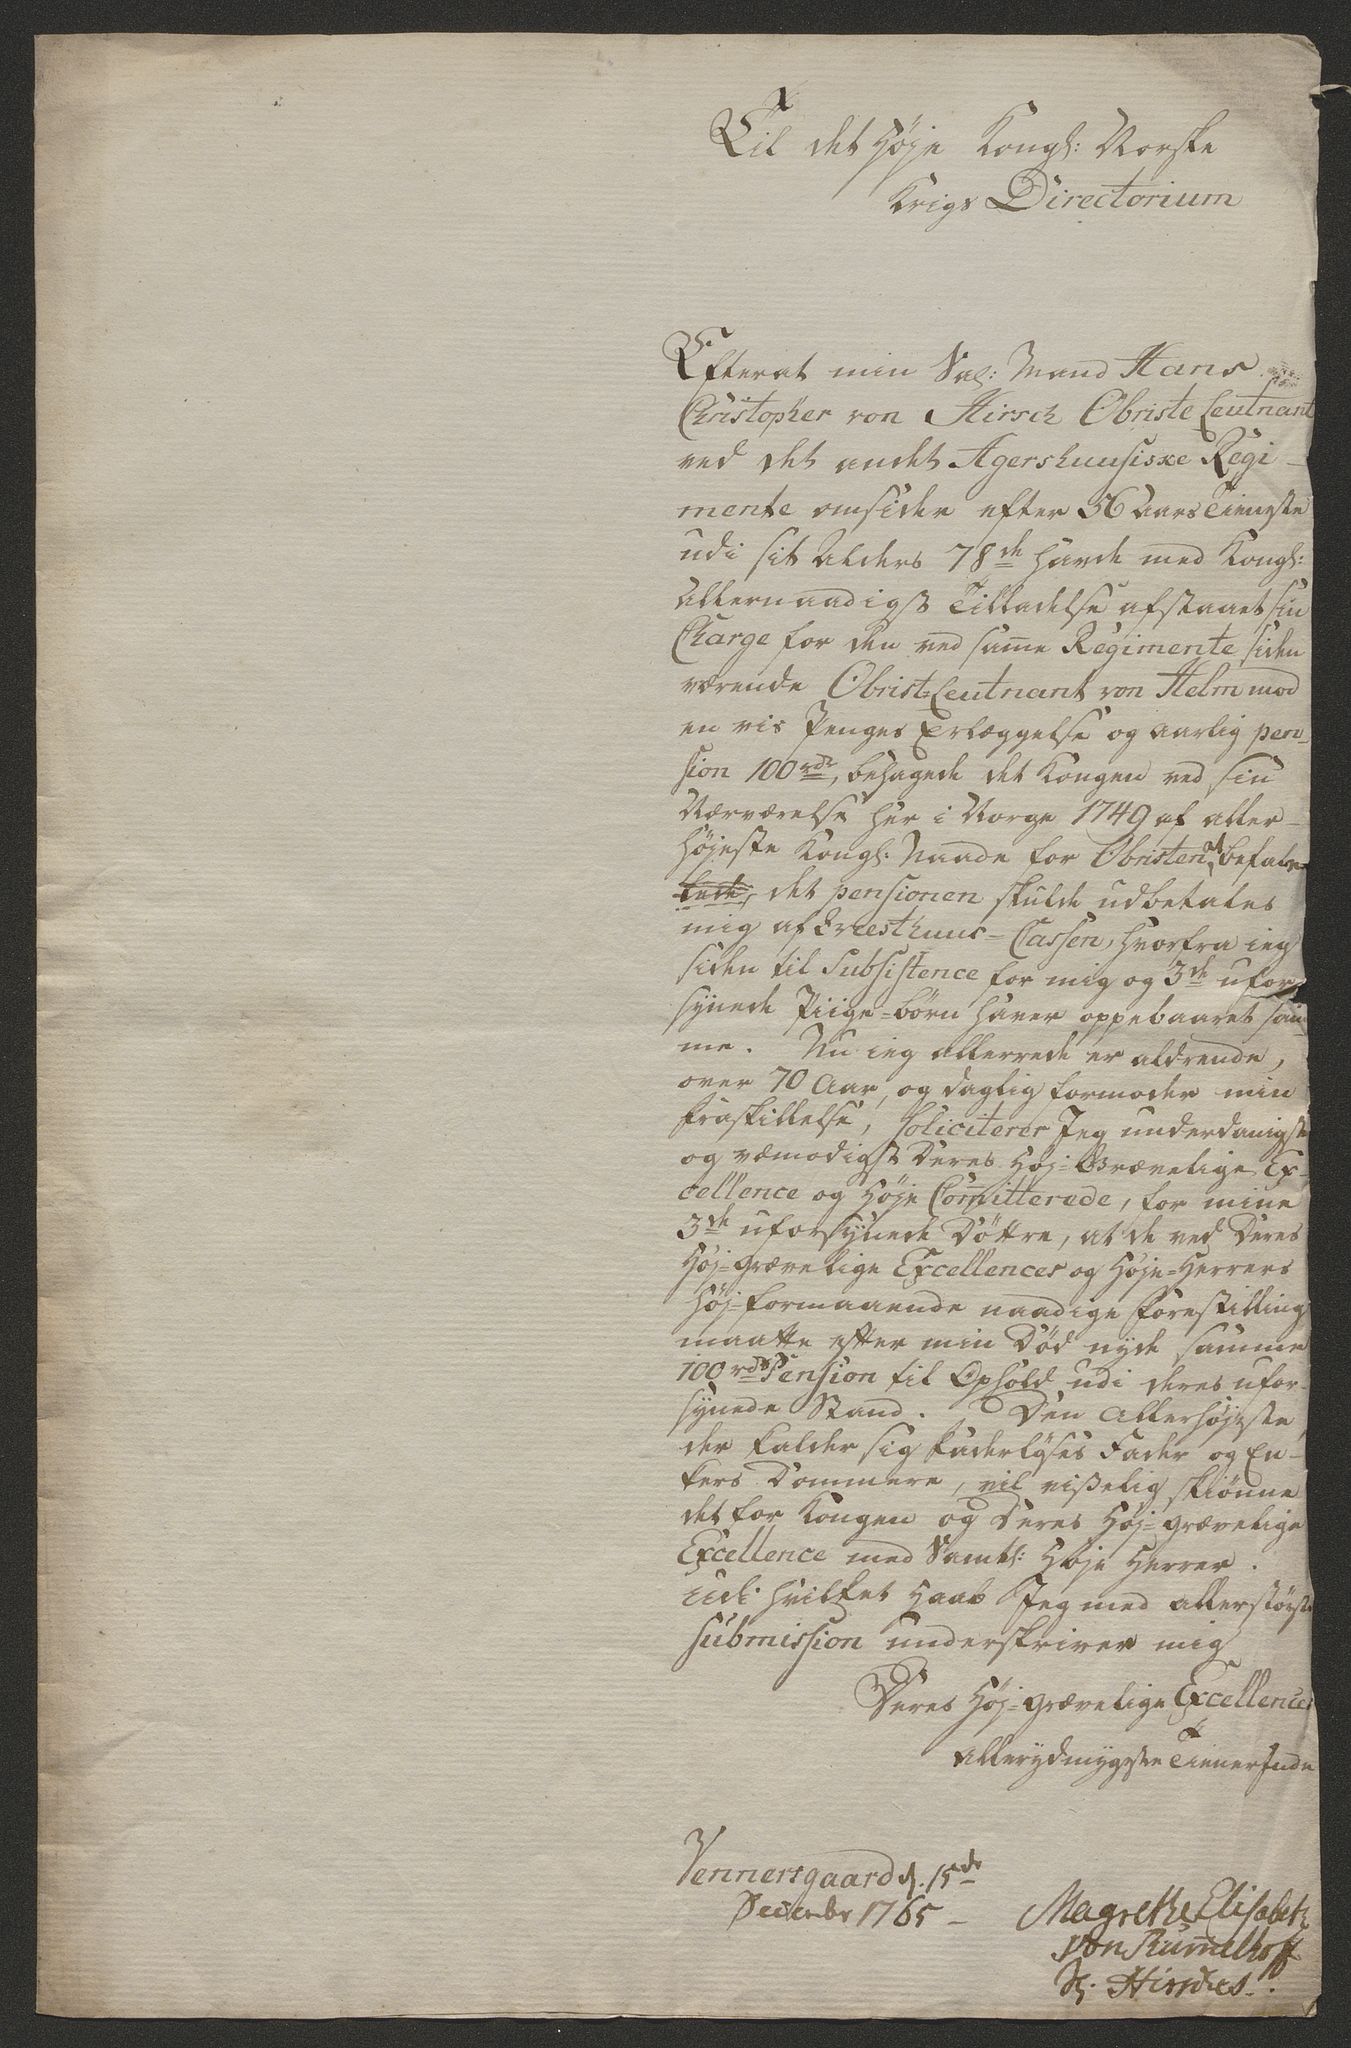 Til det Høje Kongl: Norske
Krigs Directorium
Efterat min Sal: Mand Hans
Christopher von Hirsch Obriste Leutnant
ved det andet Agershuusiske Regi-
mente omsider efter 56 aars Tieneste
udi sit Alders 78de havde med Kongl:
Allernaadigst Tilladelse afstaaet sin
Charge for den ved samme Regimente siden
værende Obrist-Leutnant von Helm mod
en vis Penges Erlæggelse og aarlig pen-
sion 100 rdr, behagede det Kongen ved sin
Nærværelse her i Norge 1749 af aller-
højeste Kongl: Naade for Obristen at befale
det pensionen skulde udbetales
mig af Qvæsthuus-Cassen, hvorfra ieg
siden til Subsistence for mig og 3de ufor-
synede Piige-børn haver oppebaaret sam-
me. Nu ieg allerrede er aldrende,
over 70 Aar, og daglig formoder min
fraskillelse, soliciterer Jeg underdanigst
og væmodigst Deres Høj-Grævelige Ex-
cellence og Høje Committerede, for mine
3de uforsynede Døttre, at de ved Deres
Høj-grævelige Excellences og Høje-Herrers
Høj-formaaende naadige forestilling
maatte efter min Død nyde samme
100 rdrs Pension til Ophold udi deres ufor-
synede Stand. Den Allerhøjeste,
der kalder sig faderløses Fader og En-
kers Dommere, vil visselig skiønne
det for Kongen og Deres Høj-grævelige
Excellence med Samtl: Høje Herrer.
udi hvilket Haab Jeg med allerstørste
submission underskriver mig
Deres Høj-grævelige Excellences
Allerydmygste Tienerinde
Vennersgaard d. 15de
December 1765
Magrethe Elisabeth
von Rummelhoff
S: Hirsches